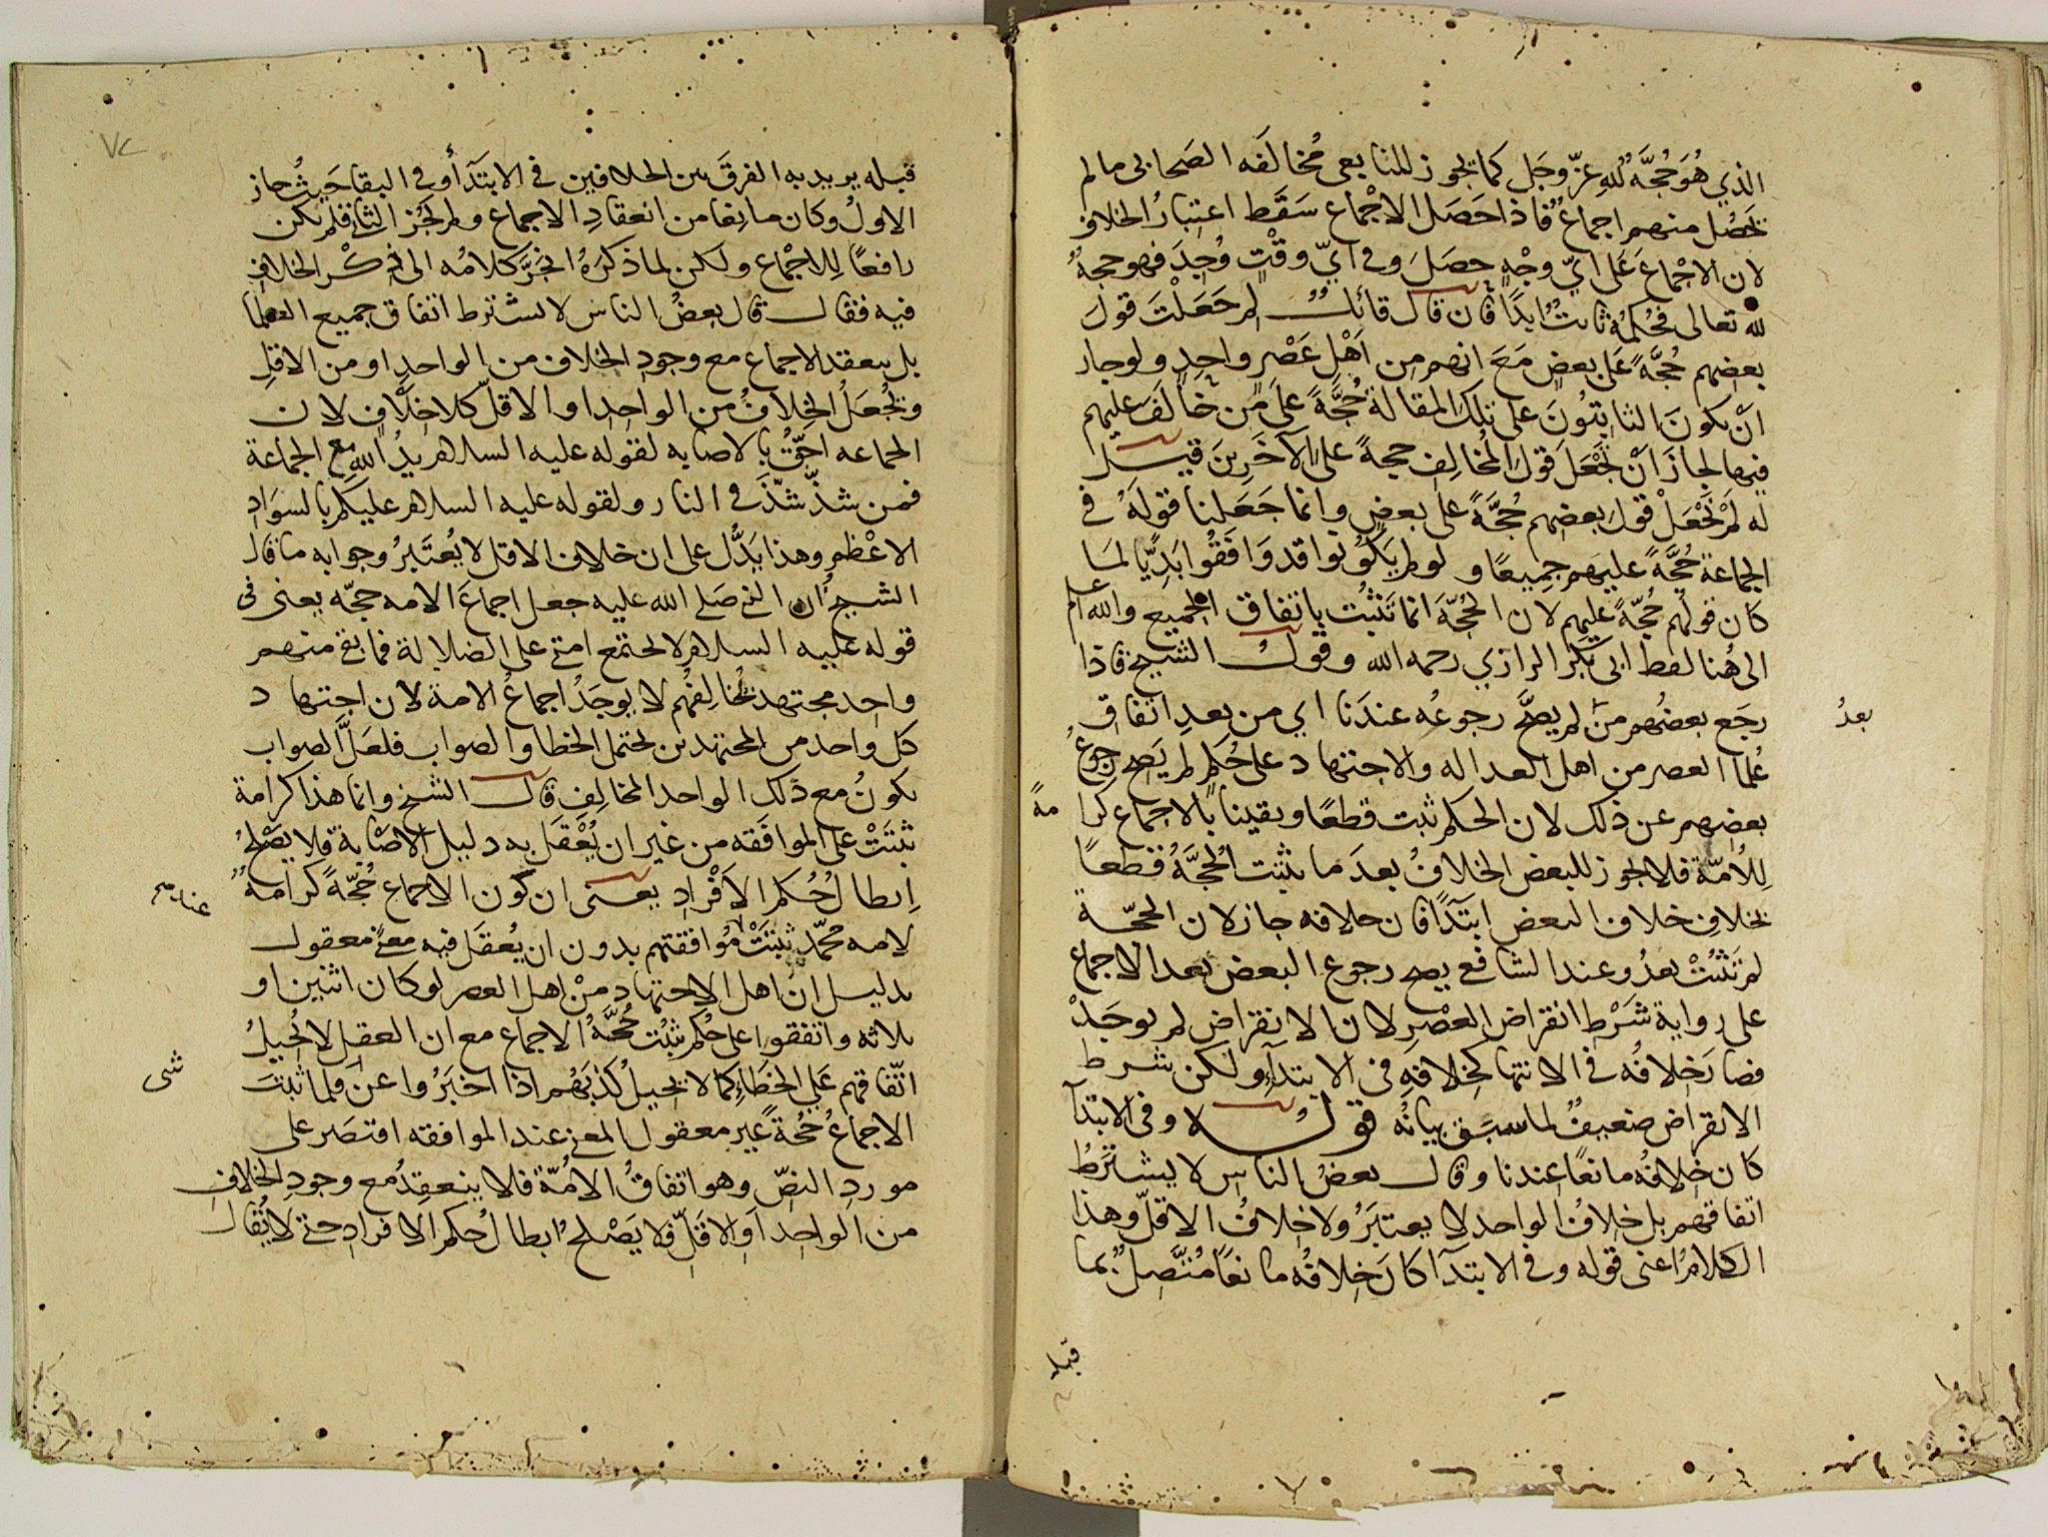 الذي هُوَ حُجَّةُ لله عزّ وجَل كما تجوز للتابعي مُخالفه الصَحابي مالم
تحصُل منهم اجماعٌ فاذا حَصَل الاجْماع سَقَط اعتبارُ الخلاف
لان الاجْماعَ عَلى ايّ وجْهٍ حصَلَ وفي ايّ وقْتٍ وُجِدَ فهو حجةٌ
لله تعالى فحُكمُهُ ثابتٌ ابدًا فان قال قائلٌ لم جَعَلْتَ قولَ
بعضهم حُجَّةً عَلى بعضٍ مَعَ انهم من اَهْلِ عَصْرٍ واحِدٍ ولو جاز
انْ يكونَ الثابتُونَ على تلكَ المقالة حُجَّةً على مَن خالَفَ عليهم
فيها لجازَ انْ تُجْعَلَ قولُ المُخالِفِ حجةً على الآخَرِينَ قيل
له لَمْ نَجْعَلْ قولَ بعضهم حُجَّةً على بعضٍ وانما جَعَلنا قولَهُ في
الجماعة حُجَّةً عليهم جميعًا ولو لم يَكُونُوا قد وَافَقُوا بَدِيًّا لمَا
كان قولُهم حُجّةً عليهم لان الحُجّةَ انما تَثْبُت باتفاق الجميع والله اعلم
الى هُنا لفظ ابي بَكر الرازي رحمه الله وقول الشيخ فاذا
رجَع بعضُهم منْ لم يصحَّ رجوعُه عندَنا اي من بعدِ اتفاقِ
بعدُ
عُلما العصر من اهل العداله والاجتهاد على حُكمٍ لم يَصح رجوعُ
بعضهم عن ذلك لان الحكم ثبت قطعًا ويقينا بالاجماع كرامةً
لِلاُمّة فلا يجوز للبعض الخلافُ بعدَ ما ثبتت الحُجَّةُ قطعًا
بخلاف خلاف البعض ابتدآً فان خلافه جاز لان الحجّة
لم تَثبُتْ بعدُ وعند الشافعي يصح رجوع البعض بعد الاجماع
على رواية شَرْط انقراض العصْر لان الانقراض لم يوجَدْ
فصارَ خلافُه في الانتها كخِلافهِ في الابتدآءِ ولكن شرط
الانقراض ضعيفٌ لما سبق بيانُه قوله وفي الابتدآ
كان خلافُه مانعًا عندنا وقال بعضُ الناس لا يشترطُ
اتفاقهم بل خلافُ الواحد لا يعتبَرُ ولا خلافُ الاقلّ وهذا
الكلامُ اعنى قوله وفي الابتدآ كان خلافُه مانعًا مُتَّصلٌ بما
قبله
٧٢
قبله يريد به الفرقَ بين الخلافين في الابتدآ وفي البقا حَيثُ جاز
الاولُ وكان مانعا من انعقادِ الاجماع ولم يَجُز الثاني فلم يكن
رافعًا لِلاجْماع ولكن لما ذكَرَهُ انجَرَّ كلامُه الى ذكر الخلاف
فيه فقال قال بعضُ الناس لا يشترط اتفاق جميع العلما
بل ينعقد الاجماع مع وجودِ الخلاف من الواحدِ او من الاقلِ
وتُجعَلُ الخِلافُ من الواحدِ او الاقلّ كلا خلافٍ لان
الجماعه احَقُّ بالاصابه لقوله عليه السلام يدُ الله مع الجماعة
فمن شذّ شذّ في النار ولقوله عليه السلام عليكم بالسوادِ
الاعْظم وهذا يَدُلُّ على ان خلاف الاقل لا يُعتَبرُ وجوابه ما قال
الشيخ ان النبي صَلى الله عليه جعل اجماعَ الامه حجّه يعنى فى
قوله عليه السلام لا تجتمع امتي على الضلالة فما بقي منهم
واحد مجتهد يُخالِفُهُم لا يوجَدُ اجماعُ الامة لان اجتهاد
كل واحد من المجتهدين يحتمل الخطا والصواب فلعَلَّ الصواب
يكونُ مع ذلك الواحد المخالِفِ قال الشيخ وانما هذا كرامة
ثبتَتْ على الموافَقه من غير ان يُعْقَل به دليل الاصَابة فلا يصْلحُ
اِبطالُ حُكم الاَفْرادِ يعنى ان كون الاجماع حُجّةً كرامةٌ
لامه محمّد ثبتَتْ مُوافقتهم بدون ان يُعقَل فيه معنًى معقول
عندهم
بدليل انّ اهل الاجتهادِ منْ اهل العصر لو كان اثنين او
ثلاثه واتفقوا على حُكمٍ ثبُتت حُجّةُ الاجماع مع ان العقل لا يُحيلُ
اتّفاقهم عَلى الخَطاءِ كما لا يحيلُ كَذبَهُم اذا اخبَرُوا عن فلما ثبتَ
شى
الاجماعُ حُجةً غير معقول المعنى عند الموافقه اقتصَر على
موردِ النصّ وهو اتفاقُ الاُمّة فلا ينعقدُ مع وجودِ الخلافِ
من الواحد اَو الاقَلّ فلا يَصْلحُ ابطالُ حكم الافرادِ حتى لا يُقال